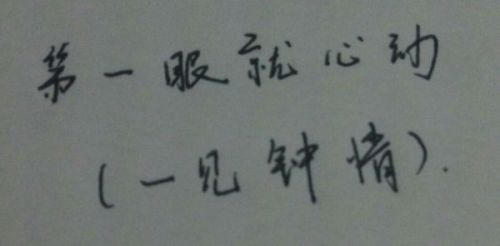 第一眼就心动
(一见钟情).